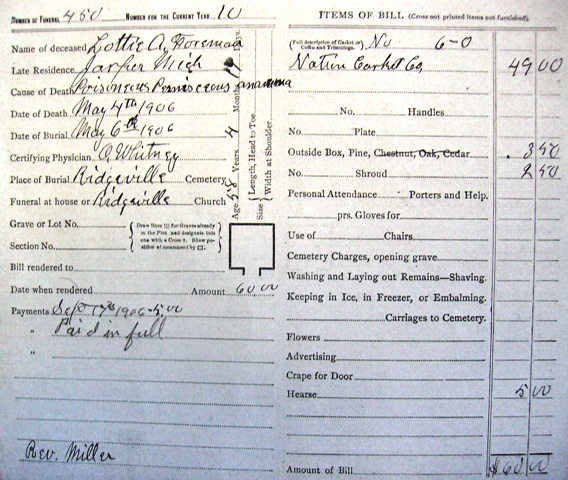 NUMBER OF FUNERAL 450 NUMBER FOR THE CURRENT YEAR 10
Name of deceased Lottie A. Foreman
Late Residence Jasper Mich
Cause of Death Poisoneous Perniceous anaemia
Date of Death May 4th 1906
Date of Burial May 6th 1906
Certifying Physician O Whitney
Place of Burial Ridgeville Cemetery
Funeral at house or Ridgeville Church
Grave or Lot No.
Section No.
Draw lines (|) for Graves already in the Plot and designate this one with a Cross †. Show position of monument by □.
Bill rendered to
Date when rendered Amount 60 00
Payments Sept 17th 1906 - 5.00
" Paid in full
"
Rev. Miller
Age 58 Years 4 Months Days.
Size { Length, Head to Toe
Width at Shoulder
ITEMS OF BILL (Cross out printed items not furnished).
(Full description of Casket or Coffin and Trimmings. No 6-0
Nation Casket Co 49 00
No. Handles
No. Plate
Outside Box, Pine, Chestnut, Oak, Cedar 3 50
No. Shroud 2 50
Personal Attendance Porters and Help.
prs. Gloves for
Use of Chairs.
Cemetery Charges, opening grave
Washing and Laying out Remains—Shaving.
Keeping in Ice, in Freezer, or Embalming.
Carriages to Cemetery.
Flowers
Advertising
Crape for Door
Hearse 5 00
Amount of Bill $60 00